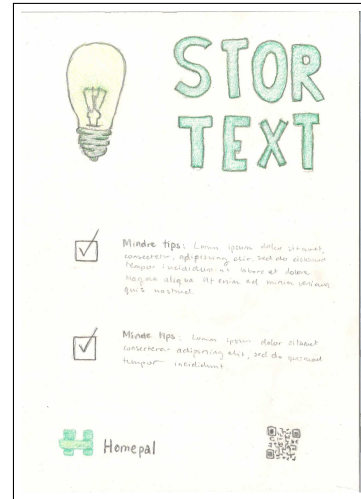 STOR
TEXT
Mindre tips: Lorem ipsum dolor sit amet,
consectetur, adipiscing elit, sed do eiusmod
tempor incididunt ut labore et dolore
magna aliqua Ut enim ad minim veniam
quis nostrud.
Mindre tips: Lorem ipsum dolor sit amet
consectetur adipiscing elit, sed do eiusmod
tempor incididunt
Homepal